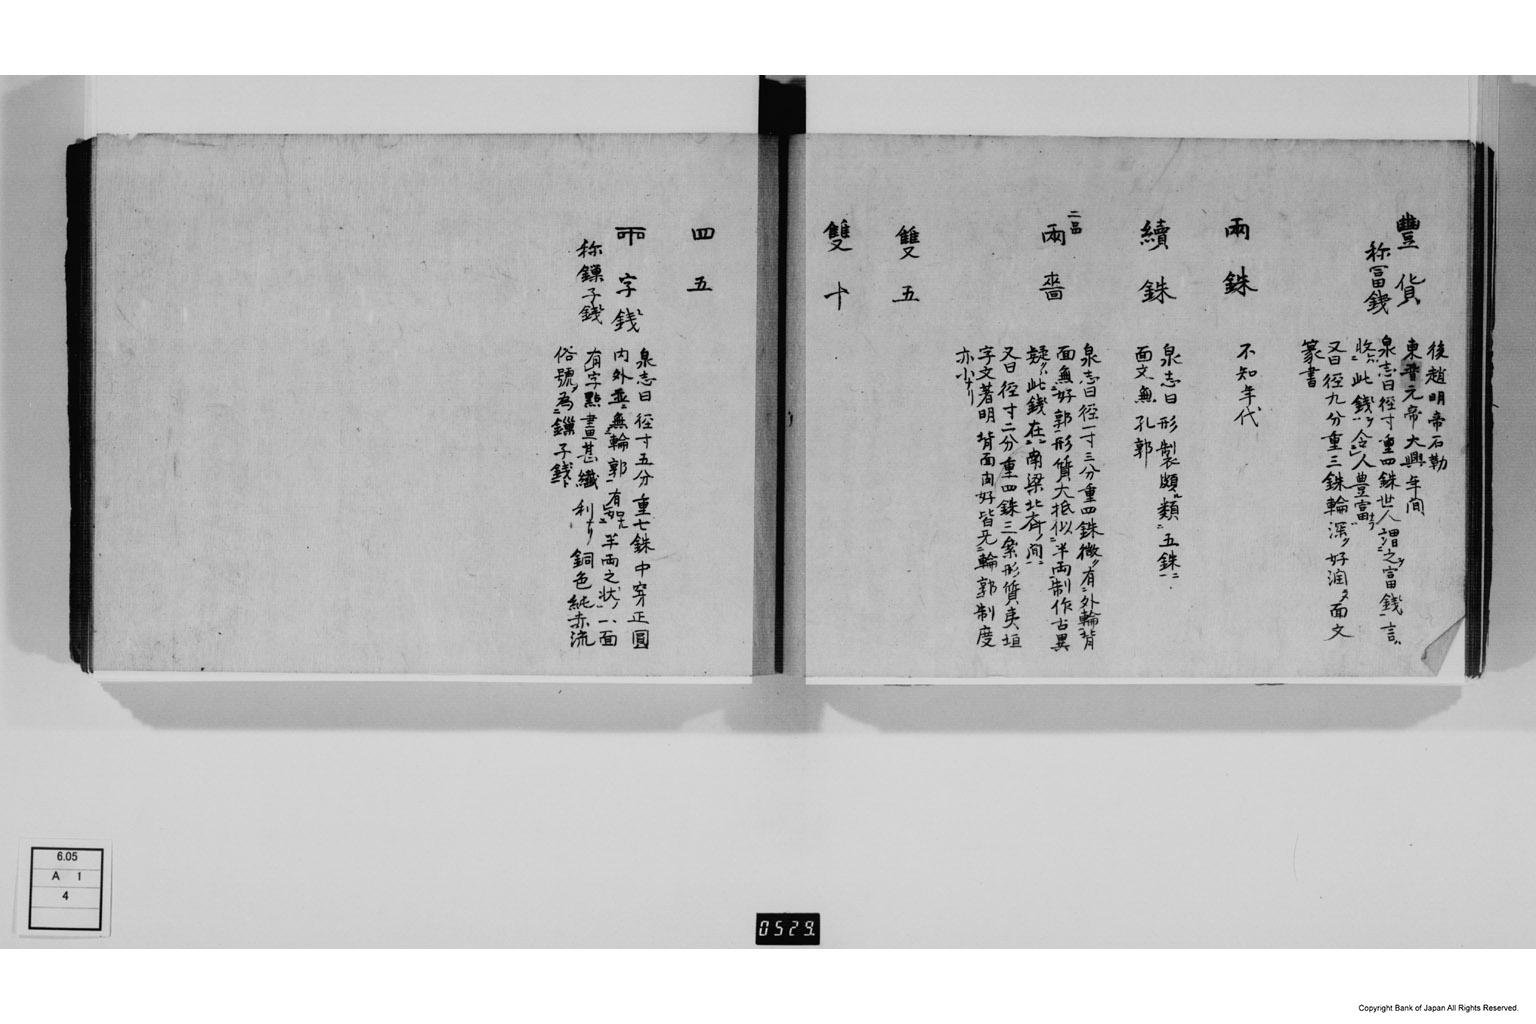 豐貨
称冨錢
後趙明帝石勒
東晋元帝大興年间
泉志曰径寸重四銖世人謂之富錢言
收此錢令人豊富
又曰径九分重三銖輪深好润面文
篆書
兩銖
不知年代
續銖
泉志曰形製頗類五銖
面文無孔郭
二品
兩啬
泉志曰径一寸三分重四銖微有外輪背
面無好郭形質大抵似半両制作古異
疑此錢在南梁北齐间
又曰径寸二分重四銖三絫形質夷坦
字文著明背面肉好皆无輪郭制度
亦小ナリ
雙五
雙十
四五
字錢
称鏁子錢
泉志曰径寸五分重七銖中穿正圓
内外並無輪郭有如半両之状一面
有字點畫甚纎利ナリ銅色純赤流
俗號為鏁子錢ト
6.05
A 1
4
0529.
Copyright Bank of Japan All Rights Reserved.